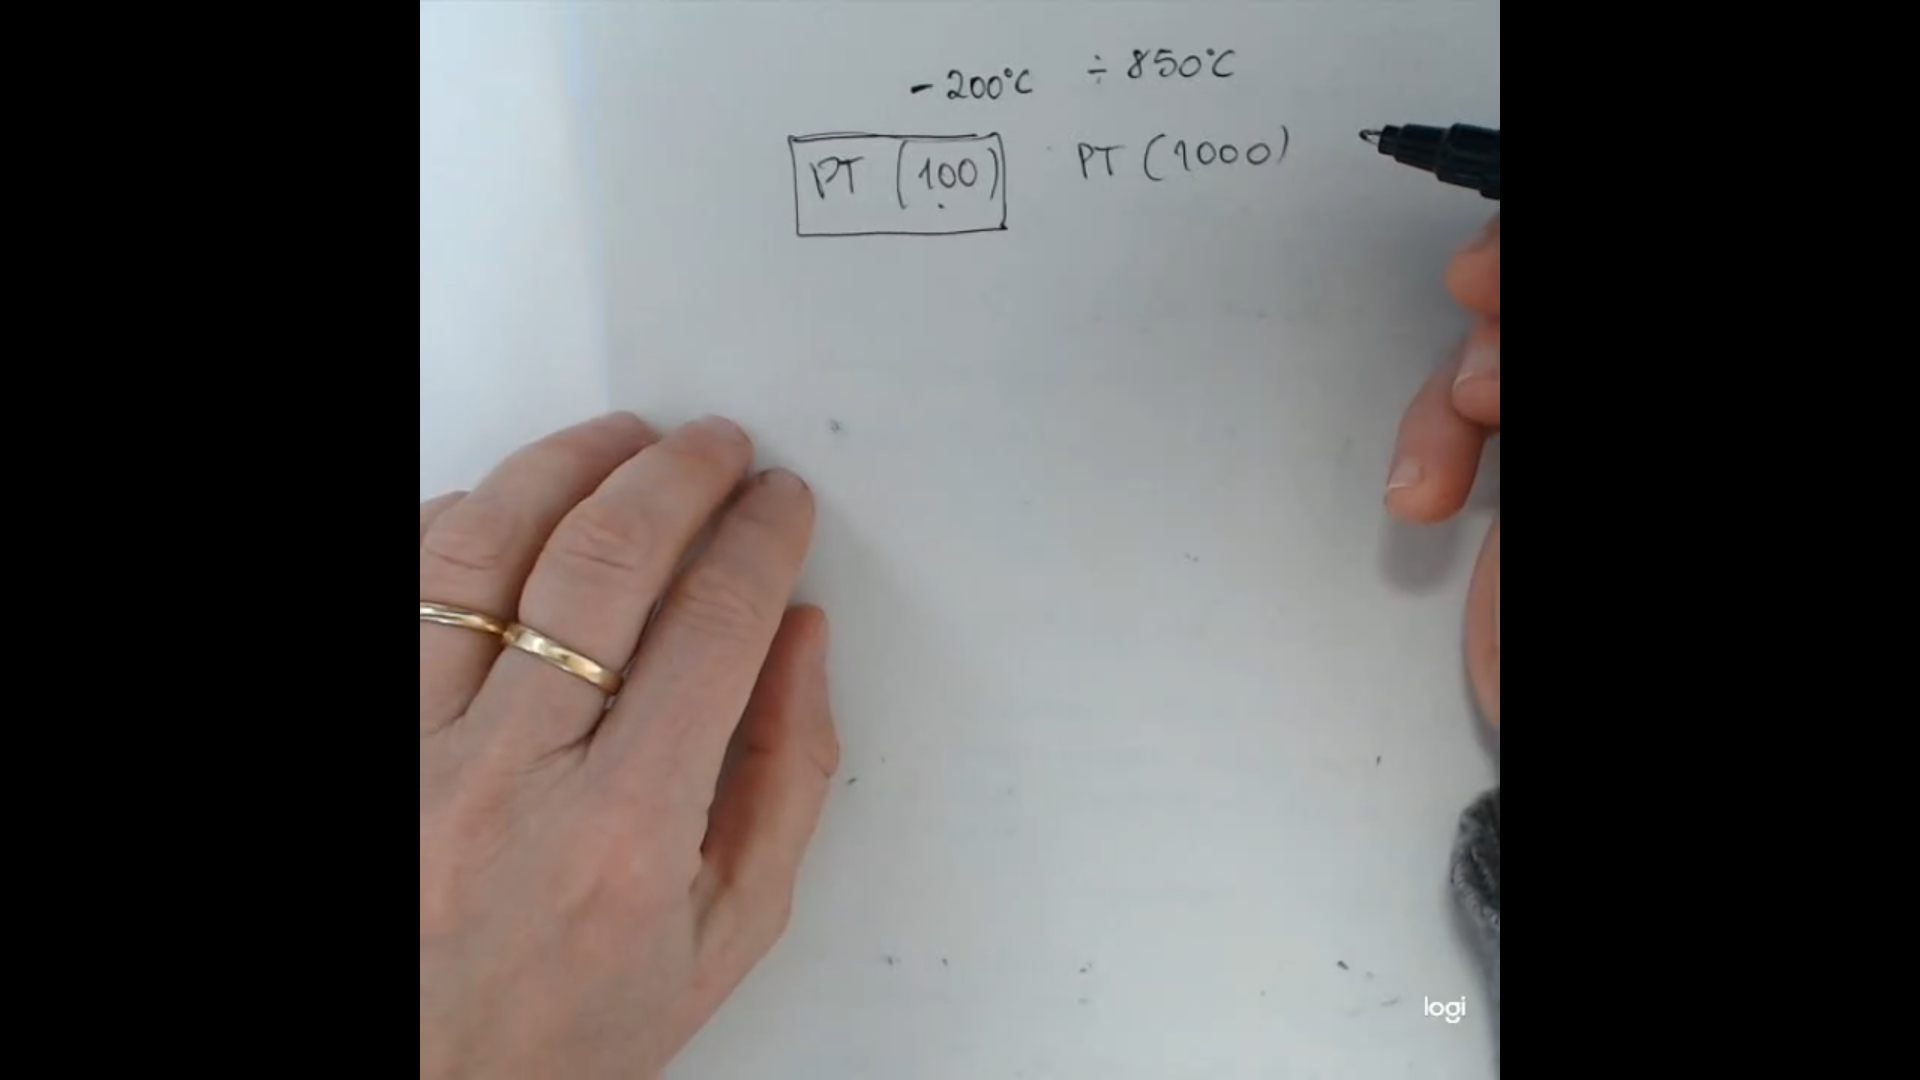 -200°C ÷ 850°C
PT (100) PT (1000)
logi